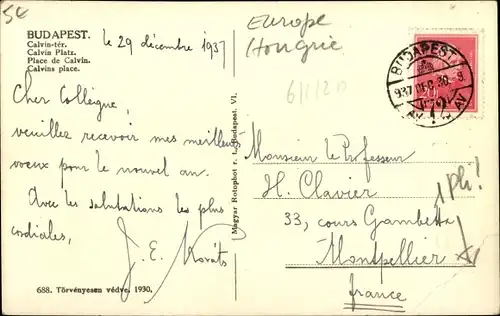 5€
BUDAPEST.
Calvin-tér.
Calvin Platz.
Place de Calvin.
Calvins place.
le 29 décembre 1937
Cher Collègue,
veuillez recevoir mes meilleurs
voeux pour le nouvel an.
Avec les salutations les plus
cordiales,
J. E. Kováts
688. Törvényesen védve. 1930.
Magyar Rotophot r. t., Budapest. VI.
Europe
Hongrie
BUDAPEST
937 DEC. 30
Monsieur le Professeur
H. Clavier
33, cours Gambetta
Montpellier
France
1 Pli!